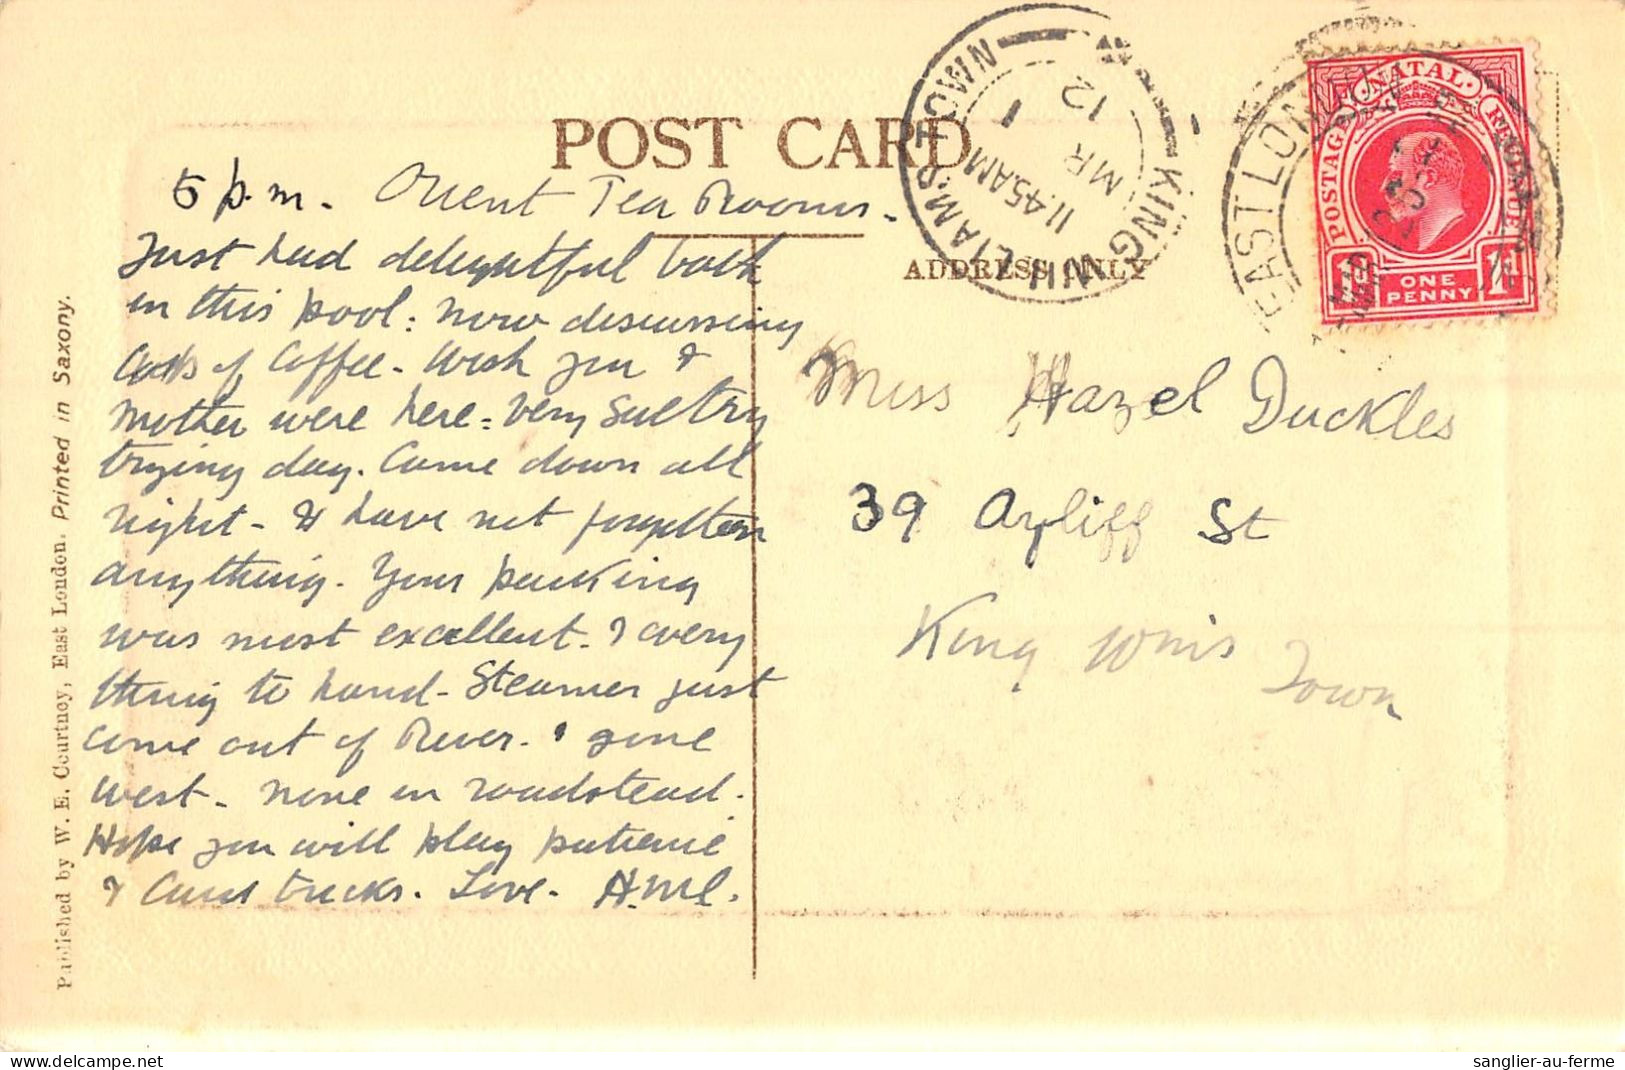 POST CARD
5 p.m. Orient Tea Rooms.
Just had delightful bath
in this pool: now discussing
of Coffee. Wish you &
mother were here = Very Sultry
trying day. Came down all
right - & have not forgotten
anything. Your packing
was most excellent. & every
thing to hand - Steamer just
come out of River. & gone
west - none in roadstead.
Hope you will play patience
& Card tricks. Love. H.M.C.
ADDRESS ONLY
Miss Hazel Duckles
39 Ayliff St
King Wms
Town
Published by W. E. Courtney, East London. Printed in Saxony.
KING WILLIAM'S TOWN
11.45.AM
MR
12
EAST LONDON
NATAL
POSTAGE REVENUE
1d ONE PENNY 1d
delcampe.net
sanglier-au-ferme